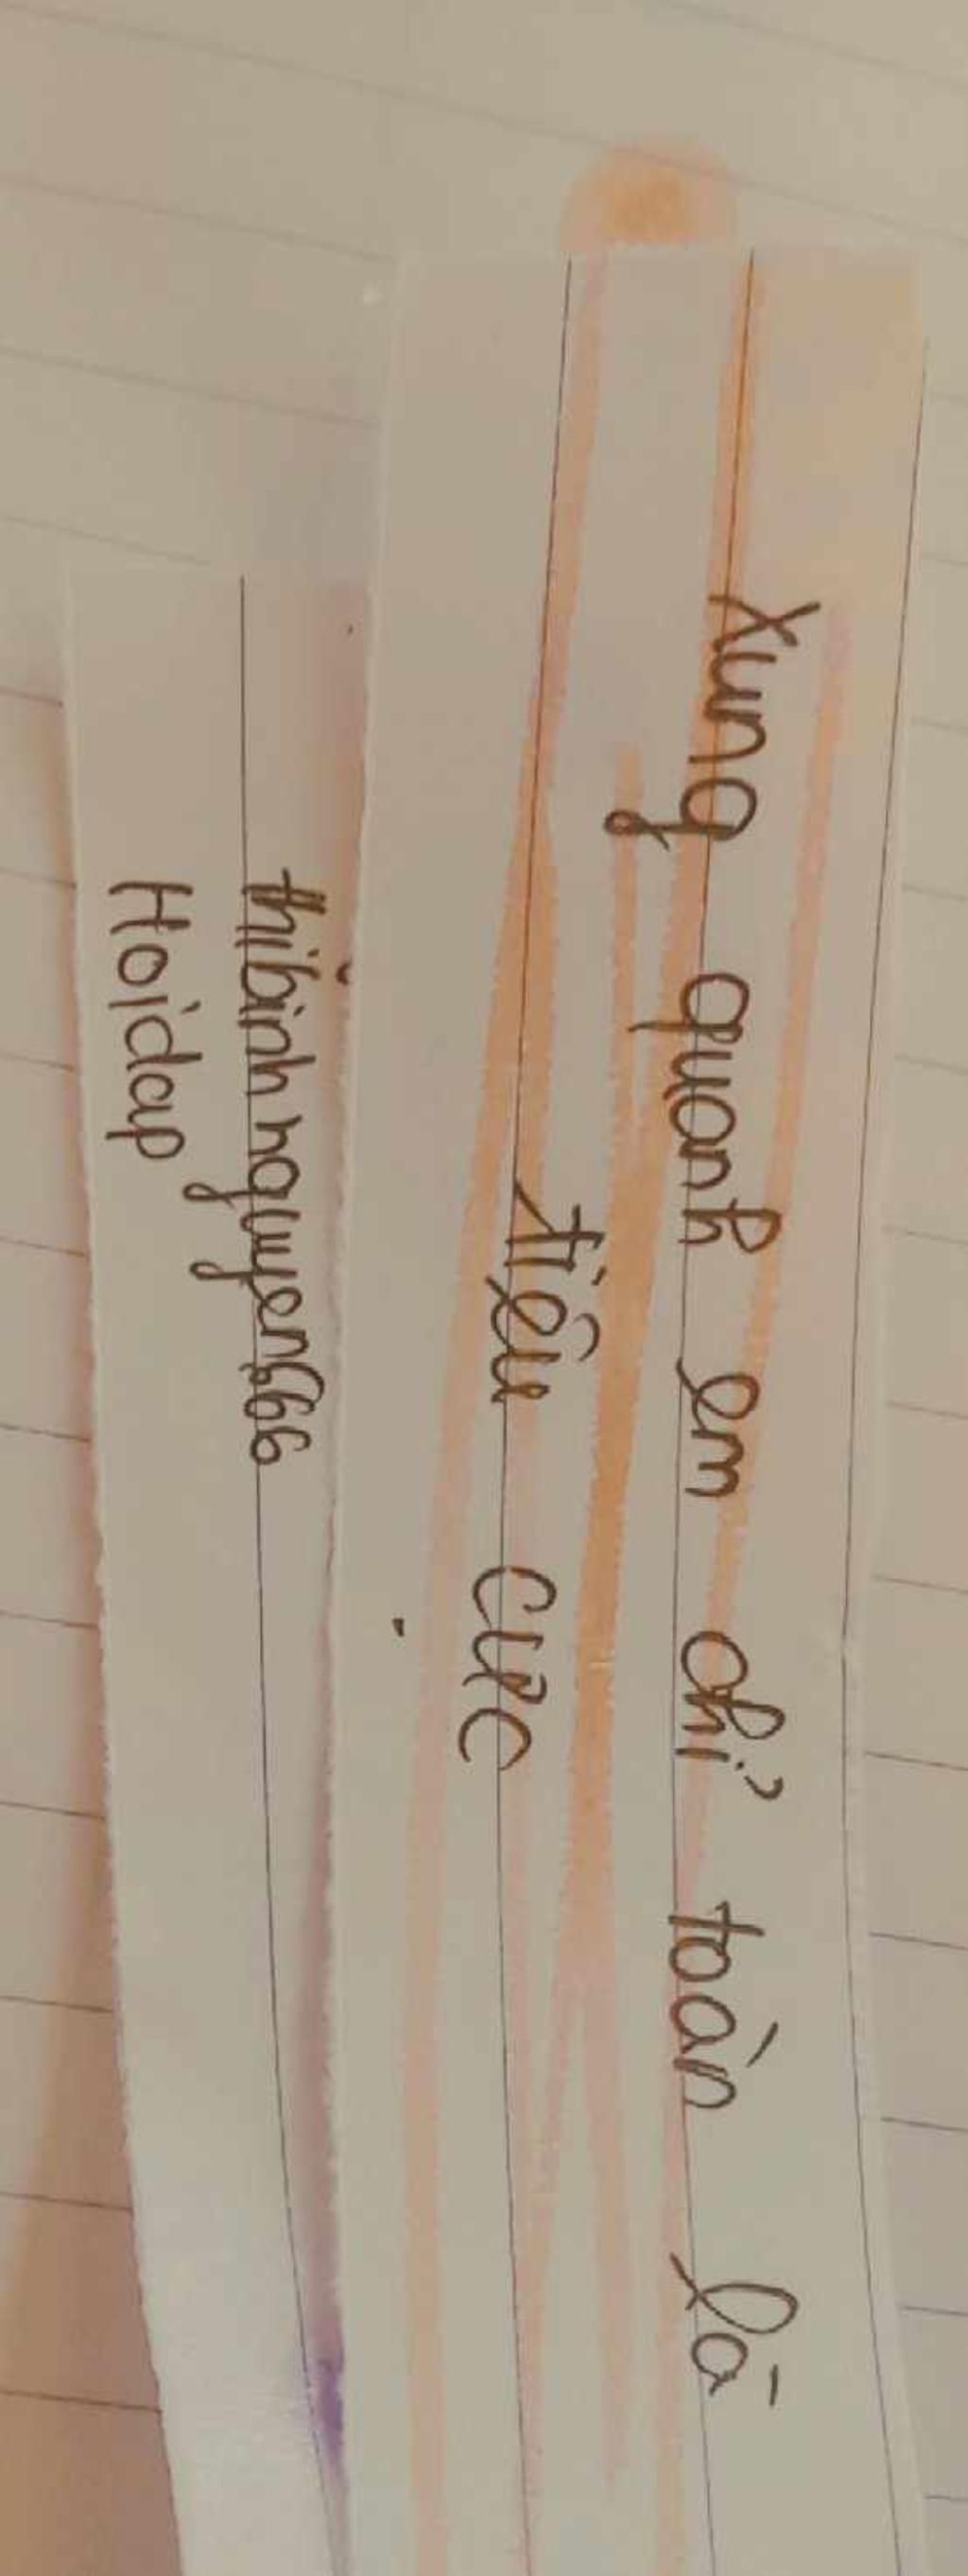 Xung quanh em chỉ toàn là
tiêu cực
thibinhnguyen666
Hoidap